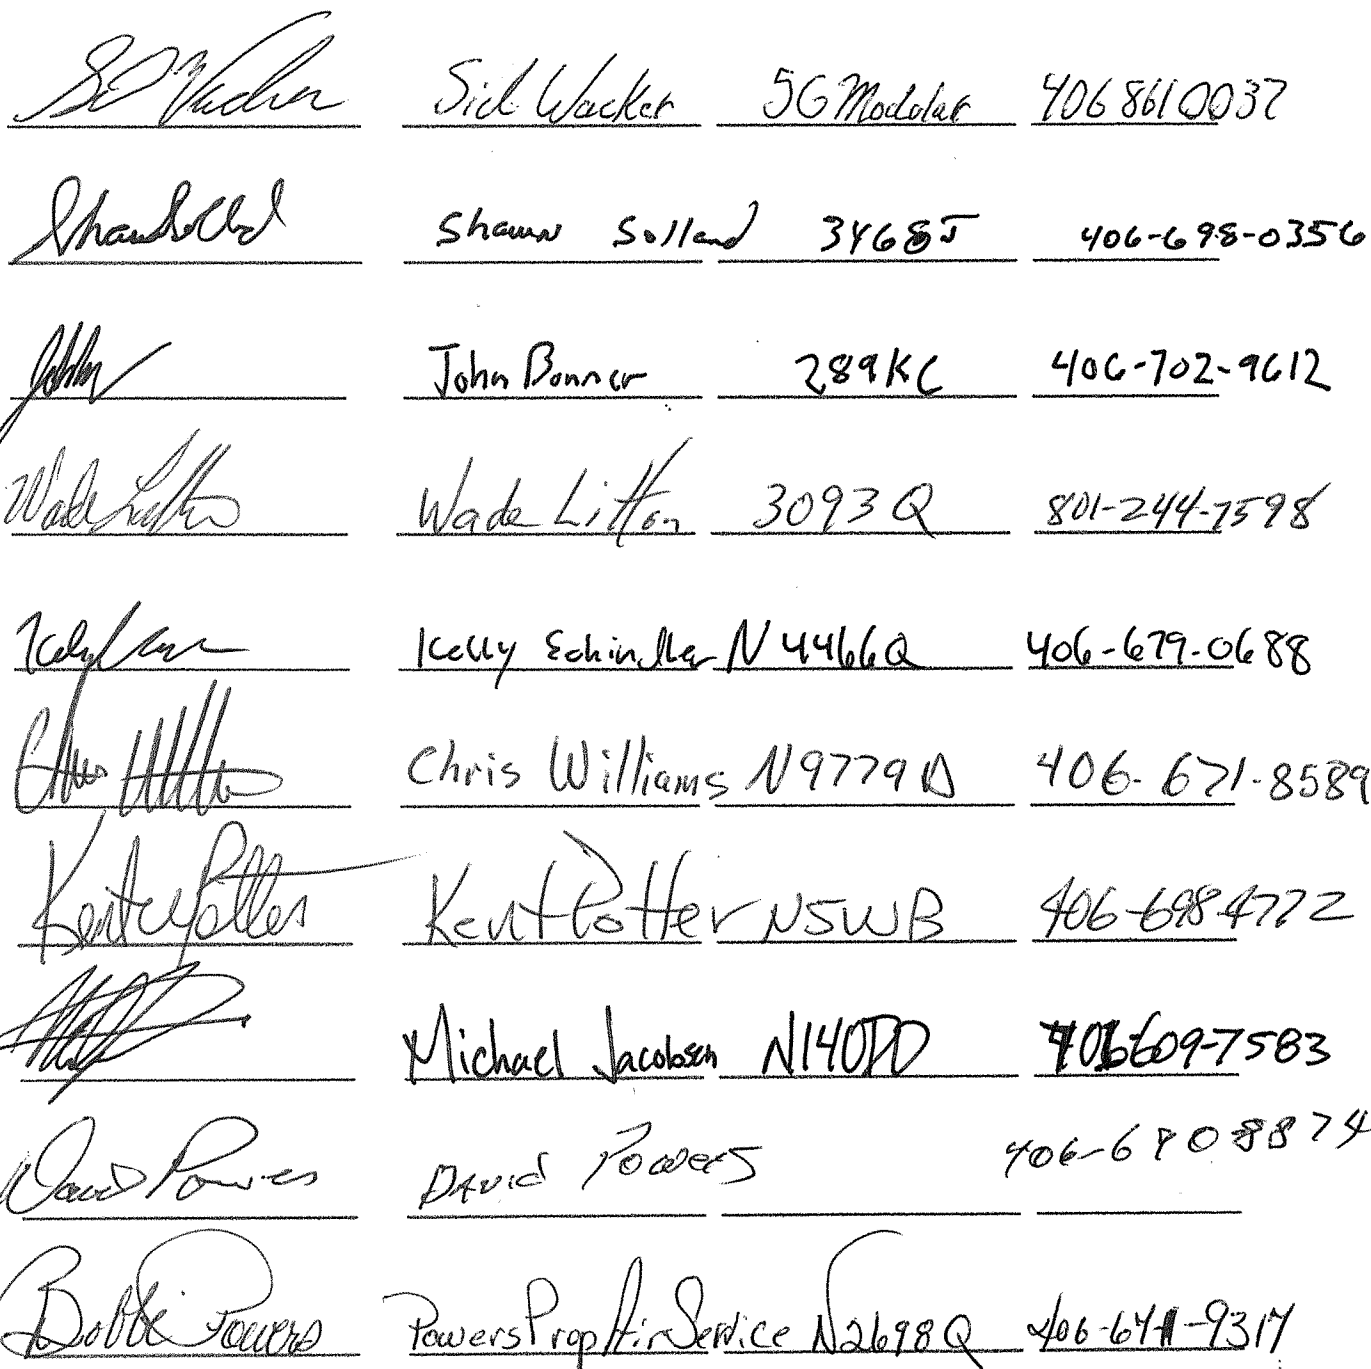 Sid Wacker 5G Modular 406 861 0037
Shawn Solland 3468J 406-698-0356
John Bonner 289KC 406-702-9612
Wade Litton Wade Litton 3093Q 801-244-7598
Kelly Schindler N4466Q 406-679-0688
Chris Williams N9779D 406-671-8589
Kent Potter Kent Potter N5WB 406-698-4772
Michael Jacobsen N140DD 406 609-7583
David Powers David Powers 406-690 8874
Bobbi Powers Powers Prop Air Service N2698Q